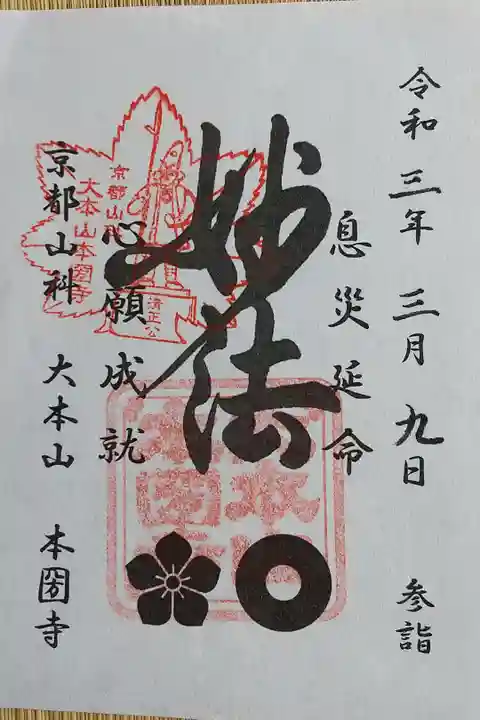 令和三年 三月九日 参詣
息災延命
妙法
心願成就
京都山科 大本山 本圀寺
京都山科
大本山本圀寺
清正公